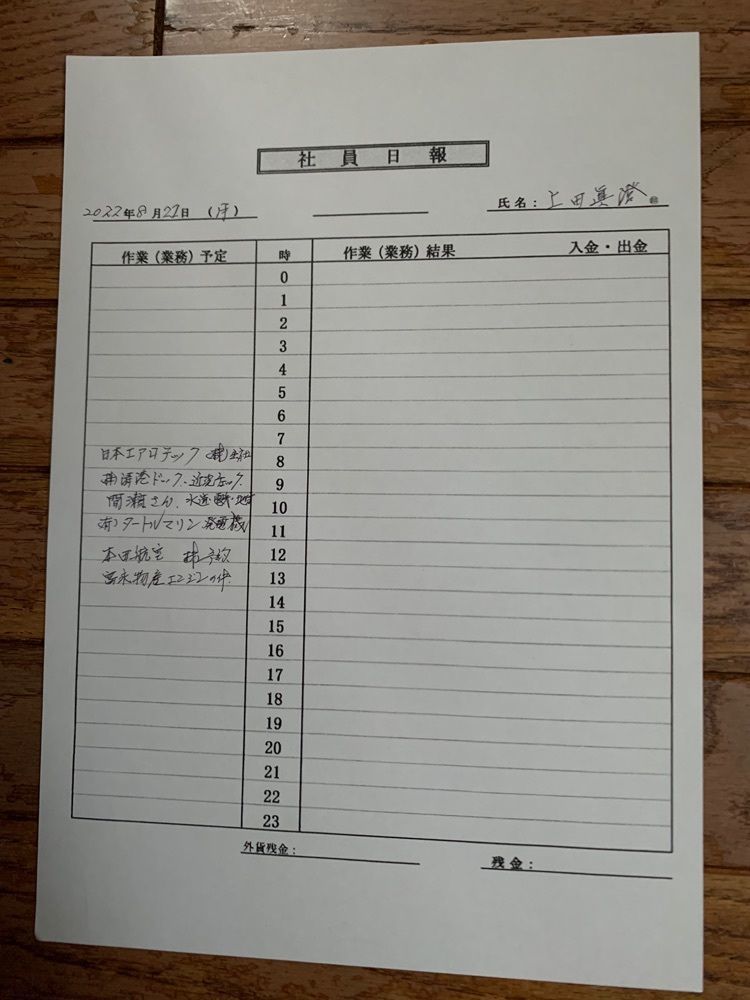 社員日報
2022年8月22日 (月)
氏名: 上田眞澄
作業(業務)予定 時 作業(業務)結果 入金・出金
0
1
2
3
4
5
6
7
日本エアロテック 8
ドック、 9
間瀬さん 水道 10
(有)タートルマリン 発電機 11
本田航空 12
富永物産 の件 13
14
15
16
17
18
19
20
21
22
23
外貨残金:
残金: